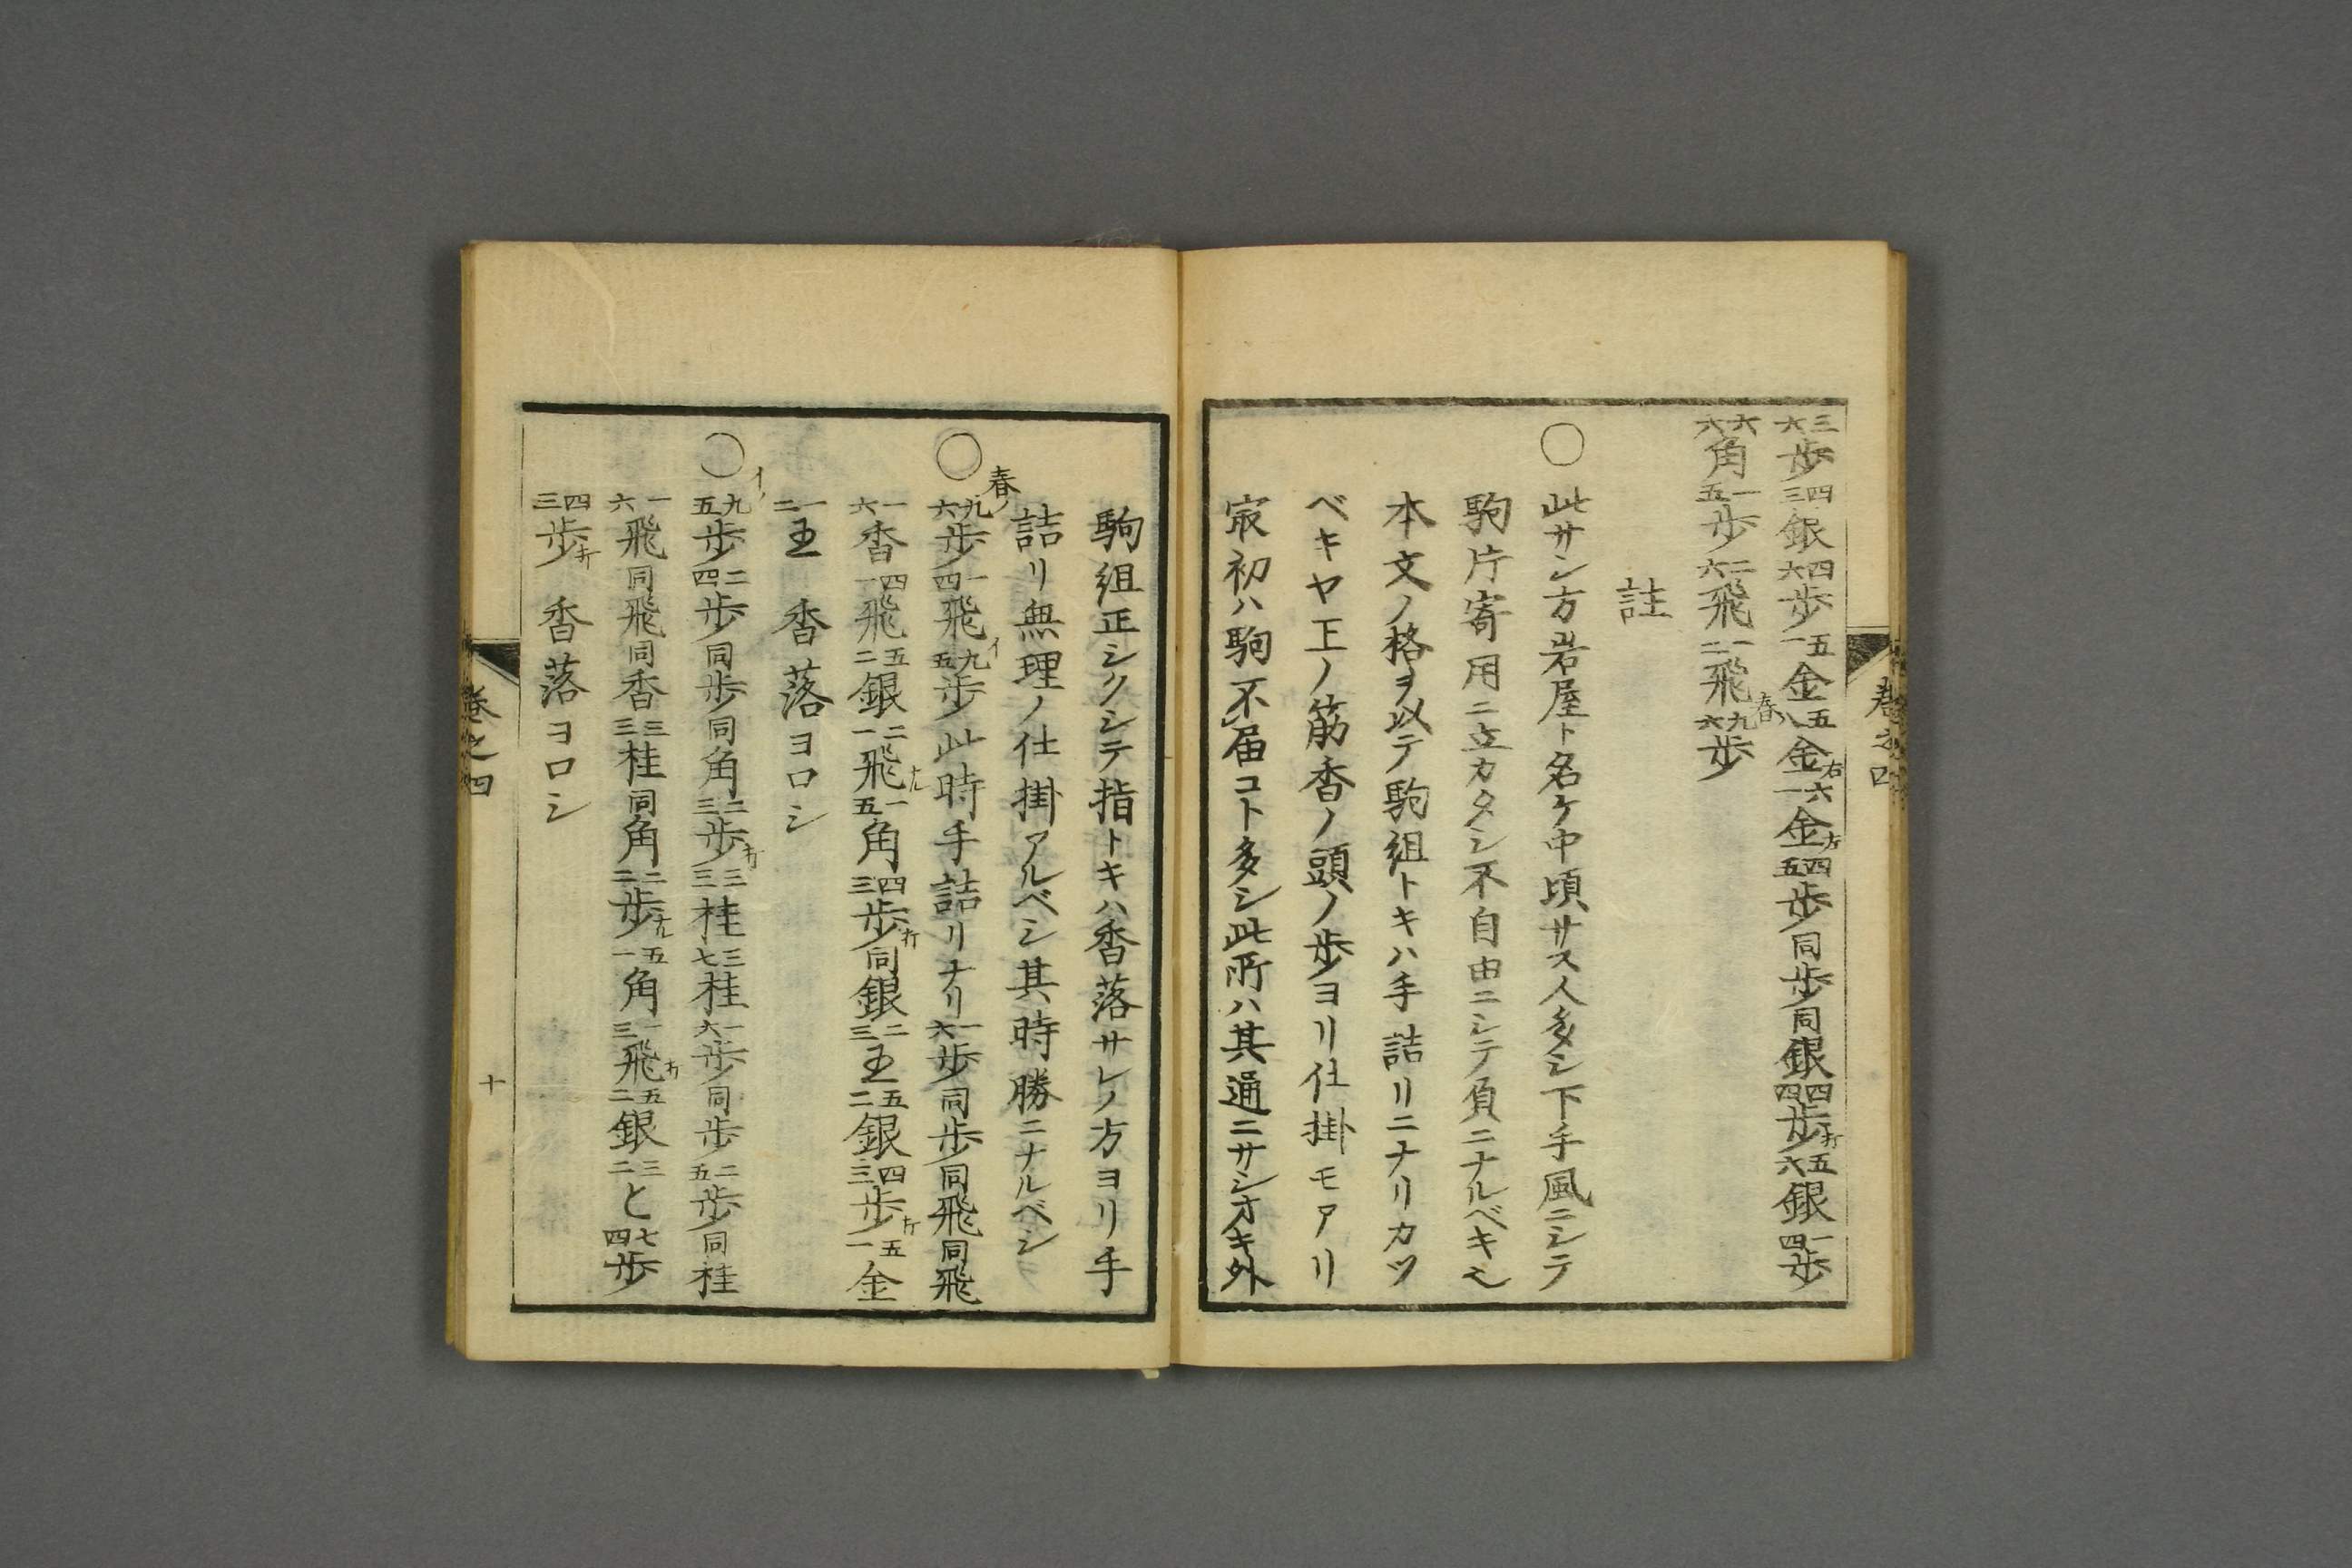 三六歩四三銀四六歩五一金五八金右六一金左四五歩同歩同銀四四歩打五六銀一四歩
六六角一五歩二六飛一二飛春九六歩
註
○此サシ方岩屋ト名ケ中頃サス人多シ下手風ニシテ
駒片寄用ニ立カタシ不自由ニシテ負ニナルベキ也
本文ノ格ヲ以テ駒組トキハ手詰リニナリカツ
ベキヤ王ノ筋香ノ頭ノ歩ヨリ仕掛モアリ
㝡初ハ駒不届コト多シ此所ハ其通ニサシオキ外
巻之四
駒組正シクシテ指トキハ香落サレノ方ヨリ手
詰リ無理ノ仕掛アルベシ其時勝ニナルベシ
○春ノ九六歩一四飛イ九五歩此時手詰リナリ一六歩同歩同飛同飛
一六香四一飛五二銀二一飛ナル一五角四三歩打同銀二三王五二銀四三歩打五一金
一二王 香落ヨロシ
○イノ九五歩二四歩同歩同角二三歩打三三桂三七桂一六歩同歩二五歩同桂
一六飛同飛同香三三桂同角二二歩ナル五一角一三飛打五二銀三二と七四歩
四三歩打 香落ヨロシ
巻之四
十